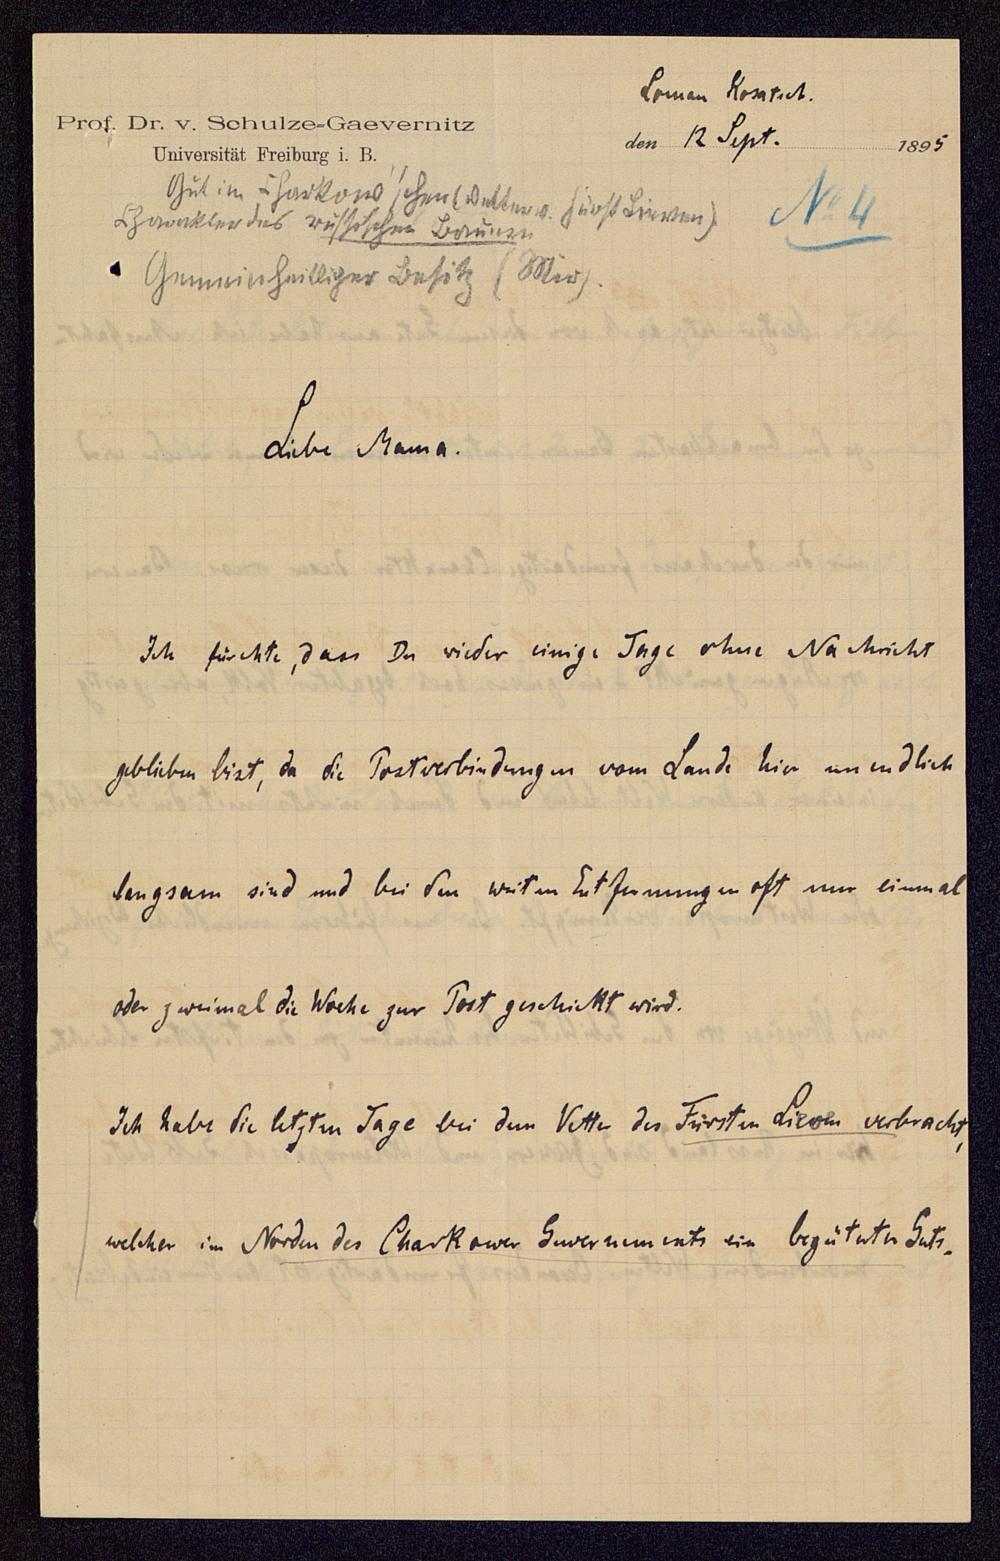 Loman Kosatsch.
Prof. Dr. v. Schulze-Gaevernitz
den 12 Sept. 1895
Universität Freiburg i. B.
Gut im Charkow'schen (Vetter v. Fürst Lieven)
No 4
Charakter des russischen Bauern
Gemeinheitlicher Besitz (Mir).
Liebe Mama.
Ich fürchte, dass Du wieder einige Tage ohne Nachricht
geblieben bist, da die Postverbindungen vom Lande hier unendlich
langsam sind und bei den weiten Entfernungen oft nur einmal
oder zweimal die Woche zur Post geschickt wird.
Ich habe die letzten Tage bei dem Vetter des Fürsten Lieven verbracht,
welcher im Norden des Charkower Guvernements ein begüterter Guts-